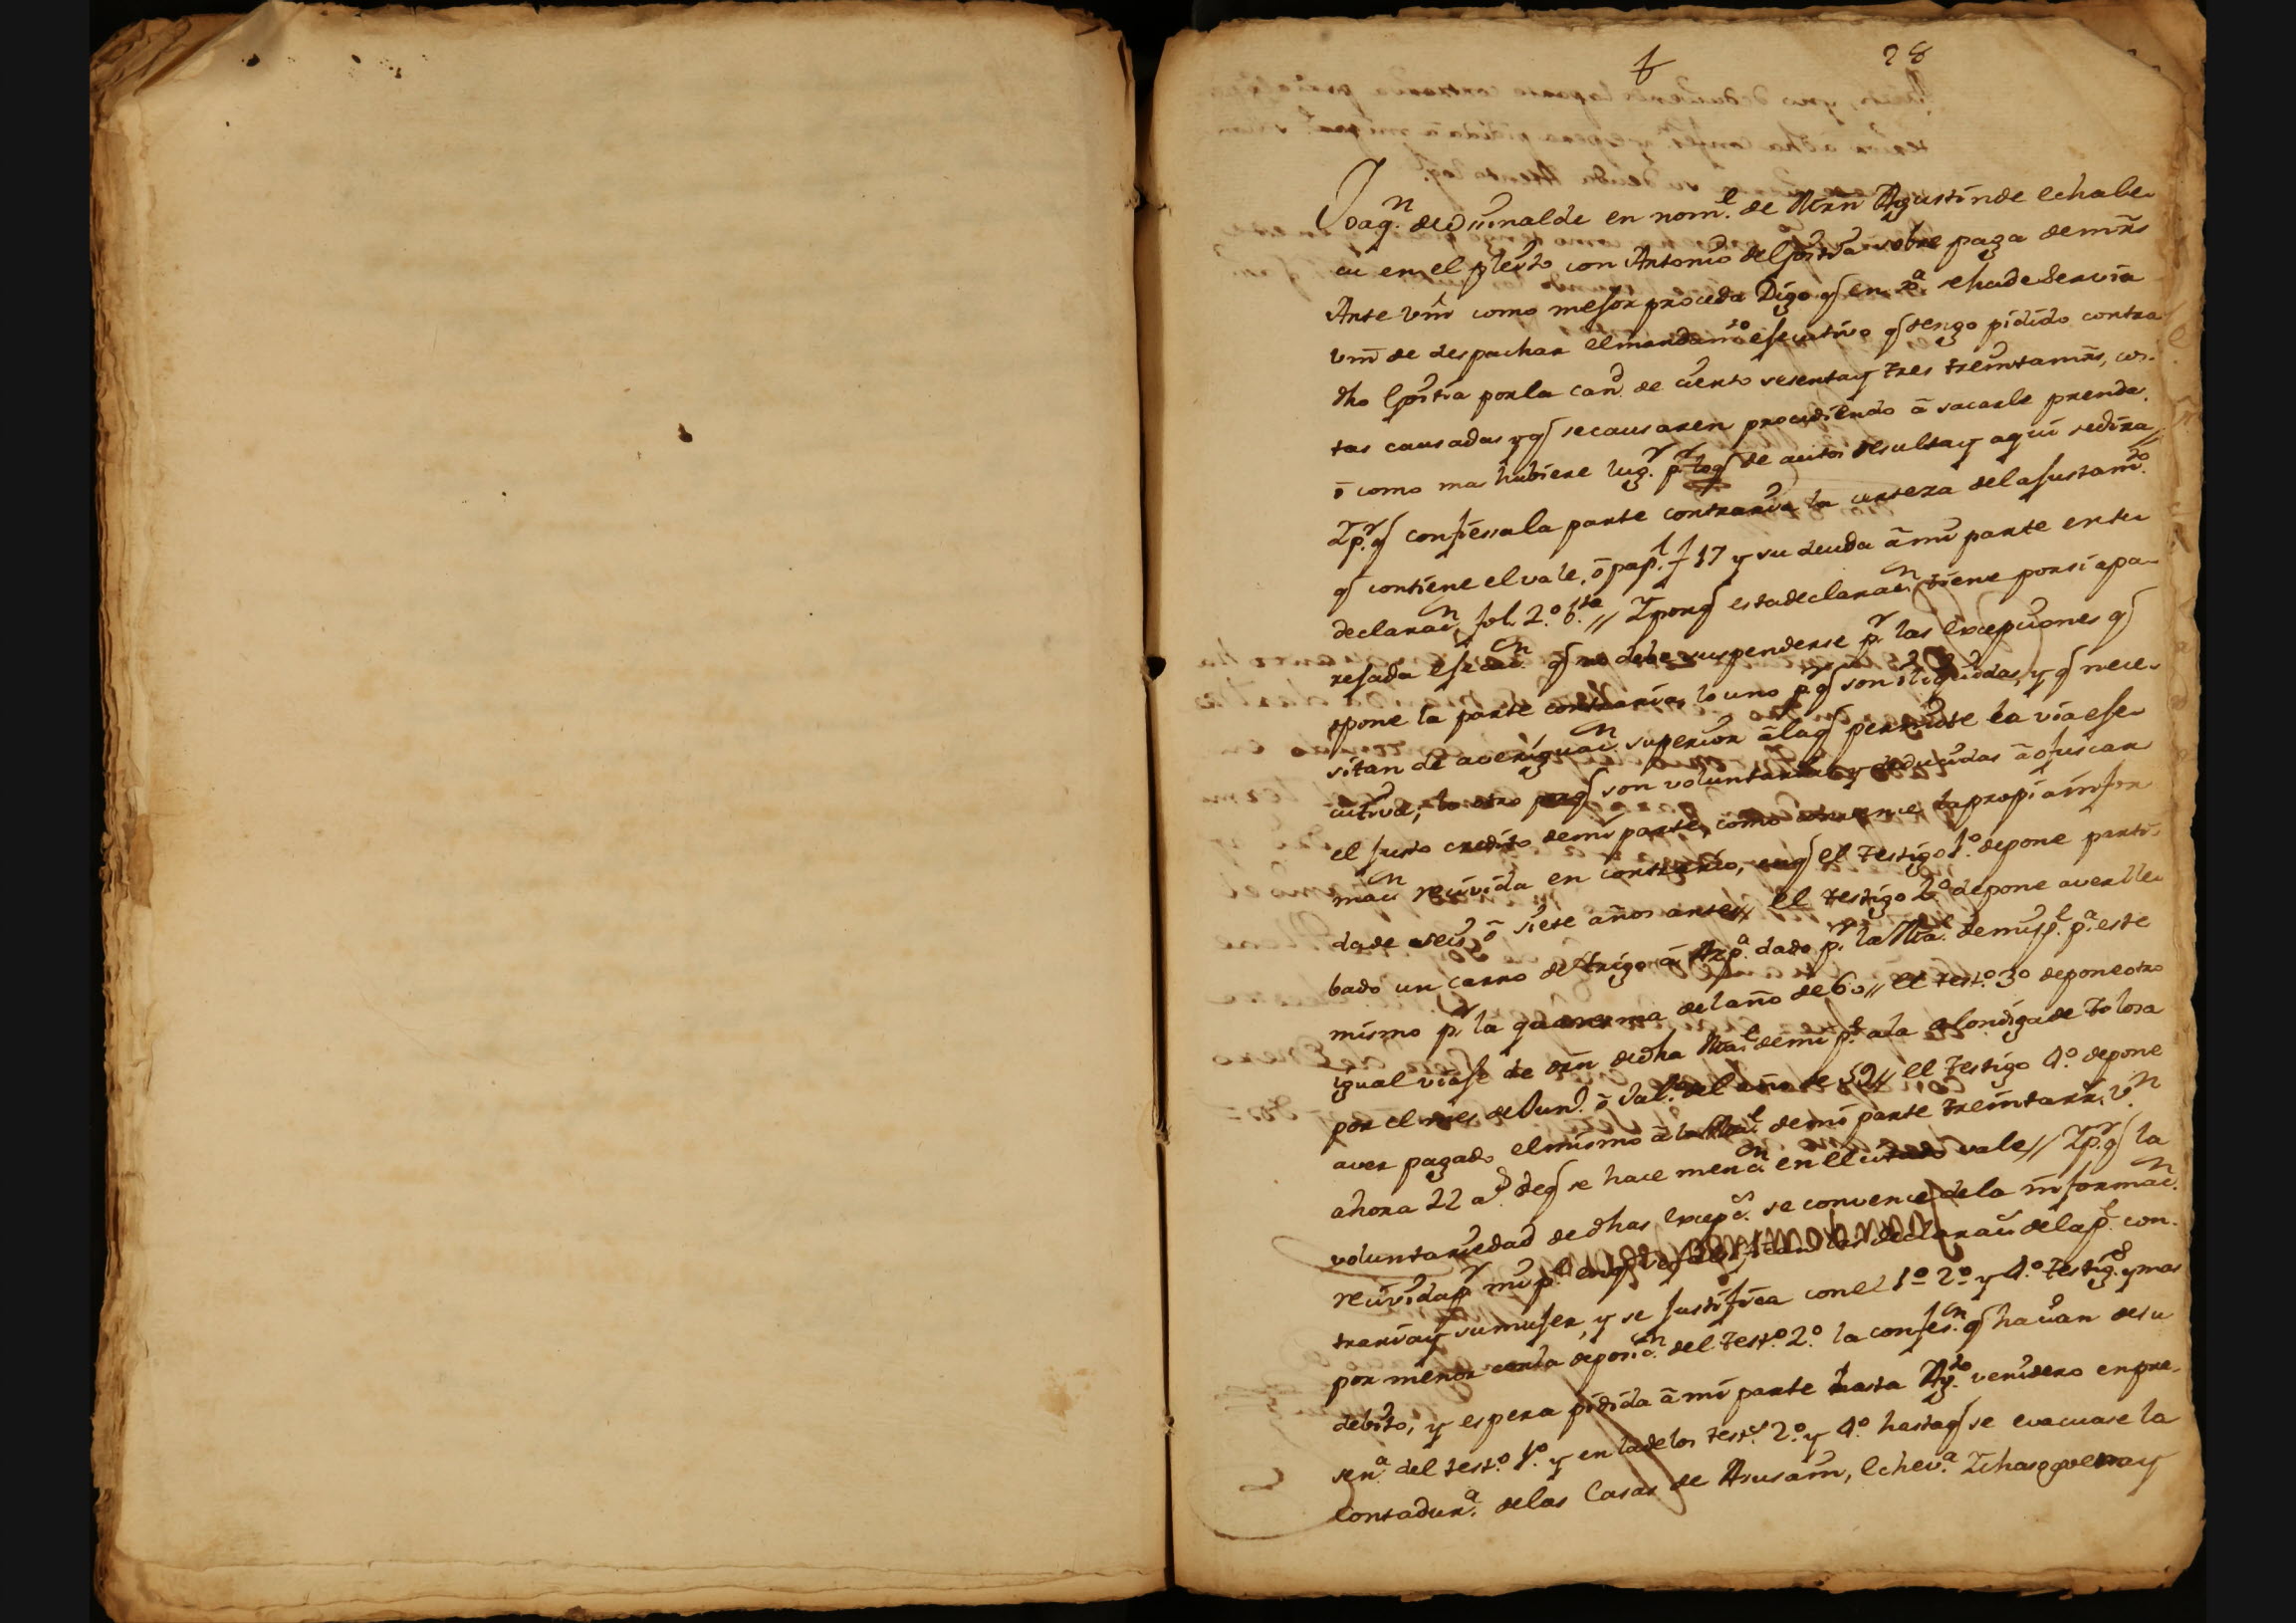 28
Joaqn. de Dunalde en nome. de Mrn Agustin de echabe
cu en el pleyto con Antonio de Goitia sobre paga de mrs
Ante Vm como mejor proceda Digo q en ra. se ha de servir
Vm de despachar el mandamto. efecutivo q tengo pidido contra
dho Goitia por la cand. de ciento sesenta y tres treinta mrs, cos
tas causadas y q se causaren procediendo a sacarle prendas
o como mas hubiere lugr. pr. lo q de autos resulta y aqui se dira //
Y pr. q confiessa la parte contraria la certeza del afustamto.
q contiene el vale, o papl. f 17 y su deuda a mi parte en su
declaracn. fol. 2.o bta // Y por q esta declaracn. tiene por si apa
refada efecucn. q no debe suspenderse pr. las excepciones q
opone la parte contraria, lo uno p q son iliquidas, y q nece
sitan de averiguacn. superior a la q permite la via efe
cutiva; lo otro porq son voluntarias y deducidas a ofuscar
el justo credito de mi parte, como la propia infor
macn recivida en contrario, en q el testigo 1.o depone parti
da de seis o siete años antes // el testigo 2.o depone aver lle
bado un carro de trigo a Azpa. dado pr. la de mi pe. pa. este
mismo pr. la quaresma del año de 60 // el testo. 3o depone otro
igual viaje de orn de dha de mi pe. a la Alondiga de Tolosa
por el mes de Jun. o Jul. del año de 59 // el testigo 4.o depone
aver pagado el mismo a la de mi parte treinta rrs. vn
ahora 22 as. de q se hace mencn en el citado vale // Y pr. q la
voluntariedad de dhas excepcs. se convence de la informacn.
recivida pr mi pe. en q declaracn de la pe. con
traria y su mujer, y se justifica con el 1o 2o y 4.o testigs. y mas
por menor con la deposicn. del testo. 2.o la confesn. q hacian de su
debito, y espera pidida a mi parte hasta Agto. venidero en pre
sena. del testo. 1.o y en la de los tests. 2.o y 4.o hasta q se evacuase la
Contadura. de las Casas de Arusam, Echeva. Ychasoguren y